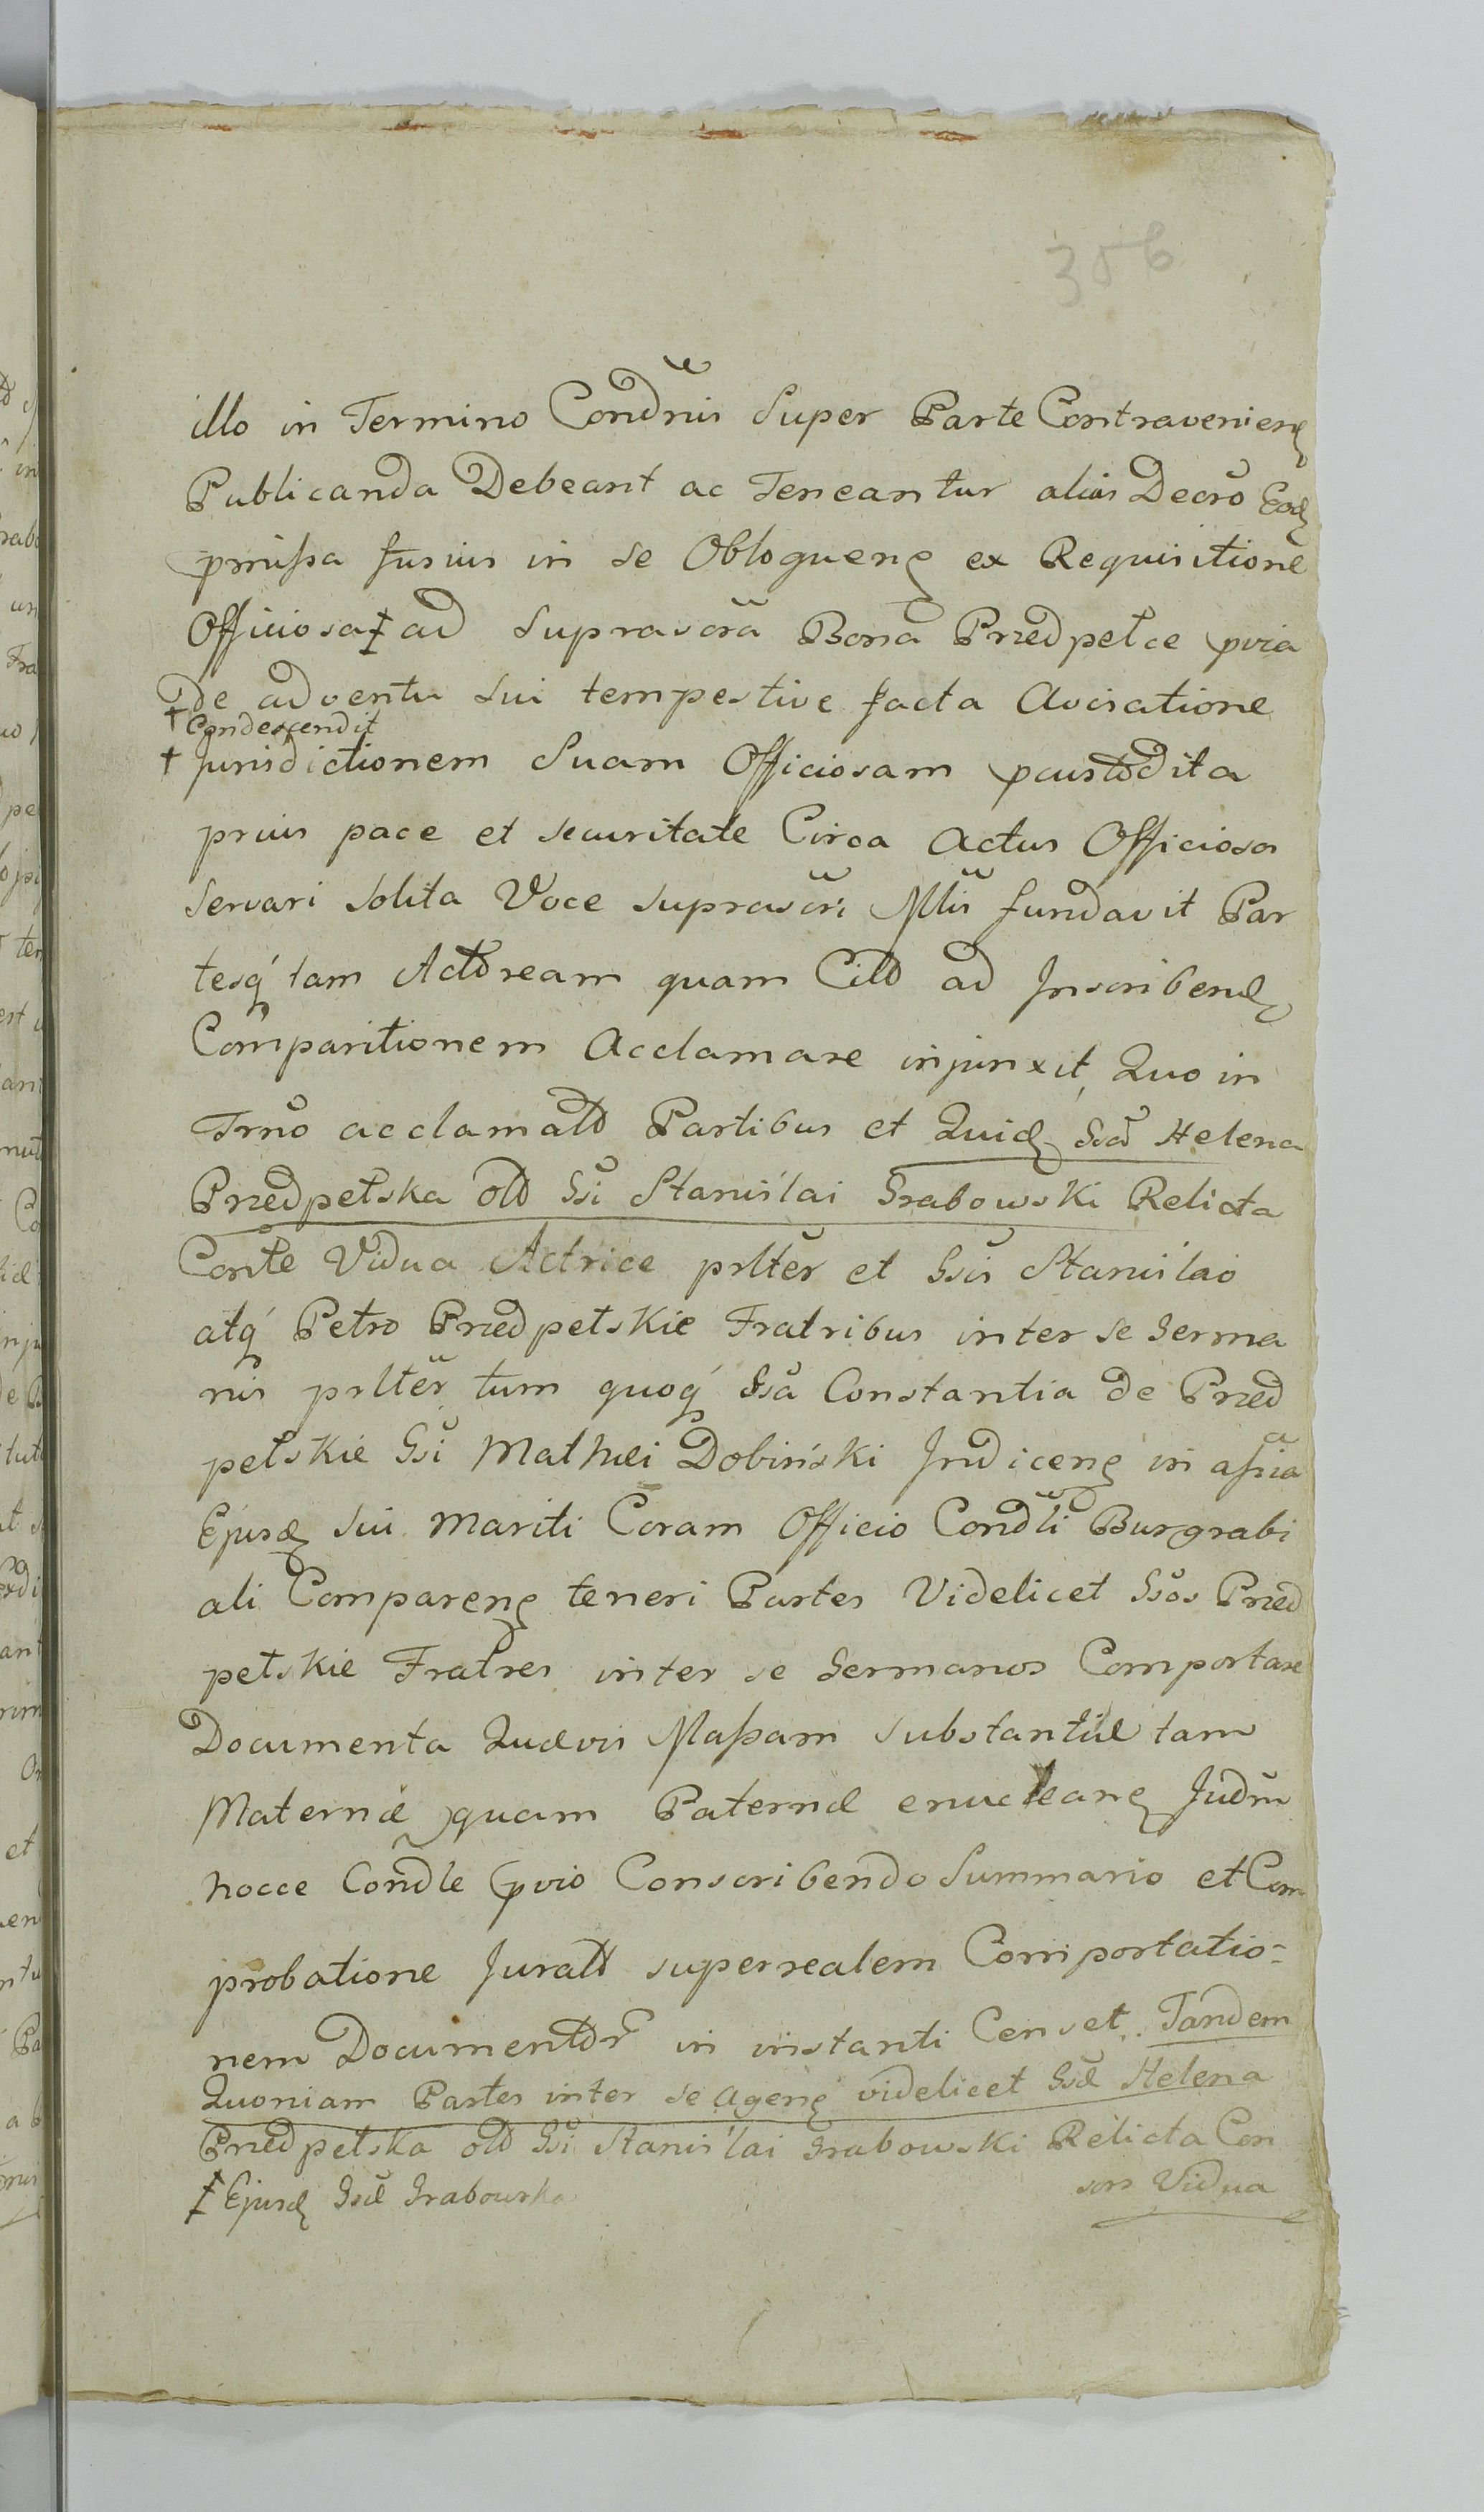 356
illo in Termino Condnis Super Parte Contravenien
Publicanda Debeant ac Teneantur alias Decro Eod
pmissa fusius in se Obloquen ex Requisitione
Officiosa ‡ ad suprascra Bona Przedpełce pvia
De adventu sui tempestive facta Avisatione
† Condescendit
† Jurisdictionem Suam Officiosam pcustodita
prius pace et securitate Circa Actus Officiosos
servari solita Voce suprascri Mlis fundavit Par
tesq tam Actoream quam Cito ad Inscribend
Comparitionem Acclamare injunxit, Quo in
Trno acclamatis Partibus et Quid Gsa Helena
Przedpełska olo Gsi Stanislai Grabowski Relicta
Conte Vidua Actrice prlter et Gsis Stanislao
atq Petro Przedpełskie Fratribus inter se Germa
nis prlter tum quoq Gsa Constantia de Przed
pełskie Gsi Mathei Dobiński Judicen in assia
Ejusd sui Mariti Coram Officio Condli Burgrabi
ali Comparen teneri Partes Videlicet Gsos Przed
pełskie Fratres inter se Germanos Comportare
Documenta Quævis Massam substantiæ tam
Maternæ quam Paternæ enuclean Judm
hocce Condle pvio Conscribendo Summario et Com
probatione Jurato super realem Comportatio=
nem Documentor in instanti Censet. Tandem
Quoniam Partes inter se Agen videlicet Gsæ Helena
Przedpełska olo Gsi Stanislai Grabowski Relicta Con
sors Vidua
‡ Ejusd Gsæ Grabowska